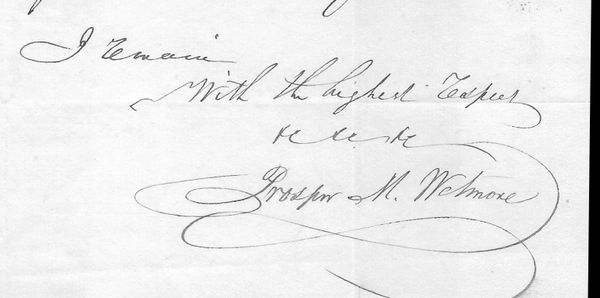 I remain
With the highest respect
&c &c &c
Prosper M. Wetmore